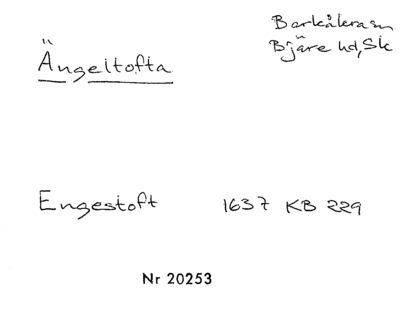 Barkåkra sn
Bjäre hd, Sk
Ängeltofta
Engestoft 1637 KB 229
Nr 20253